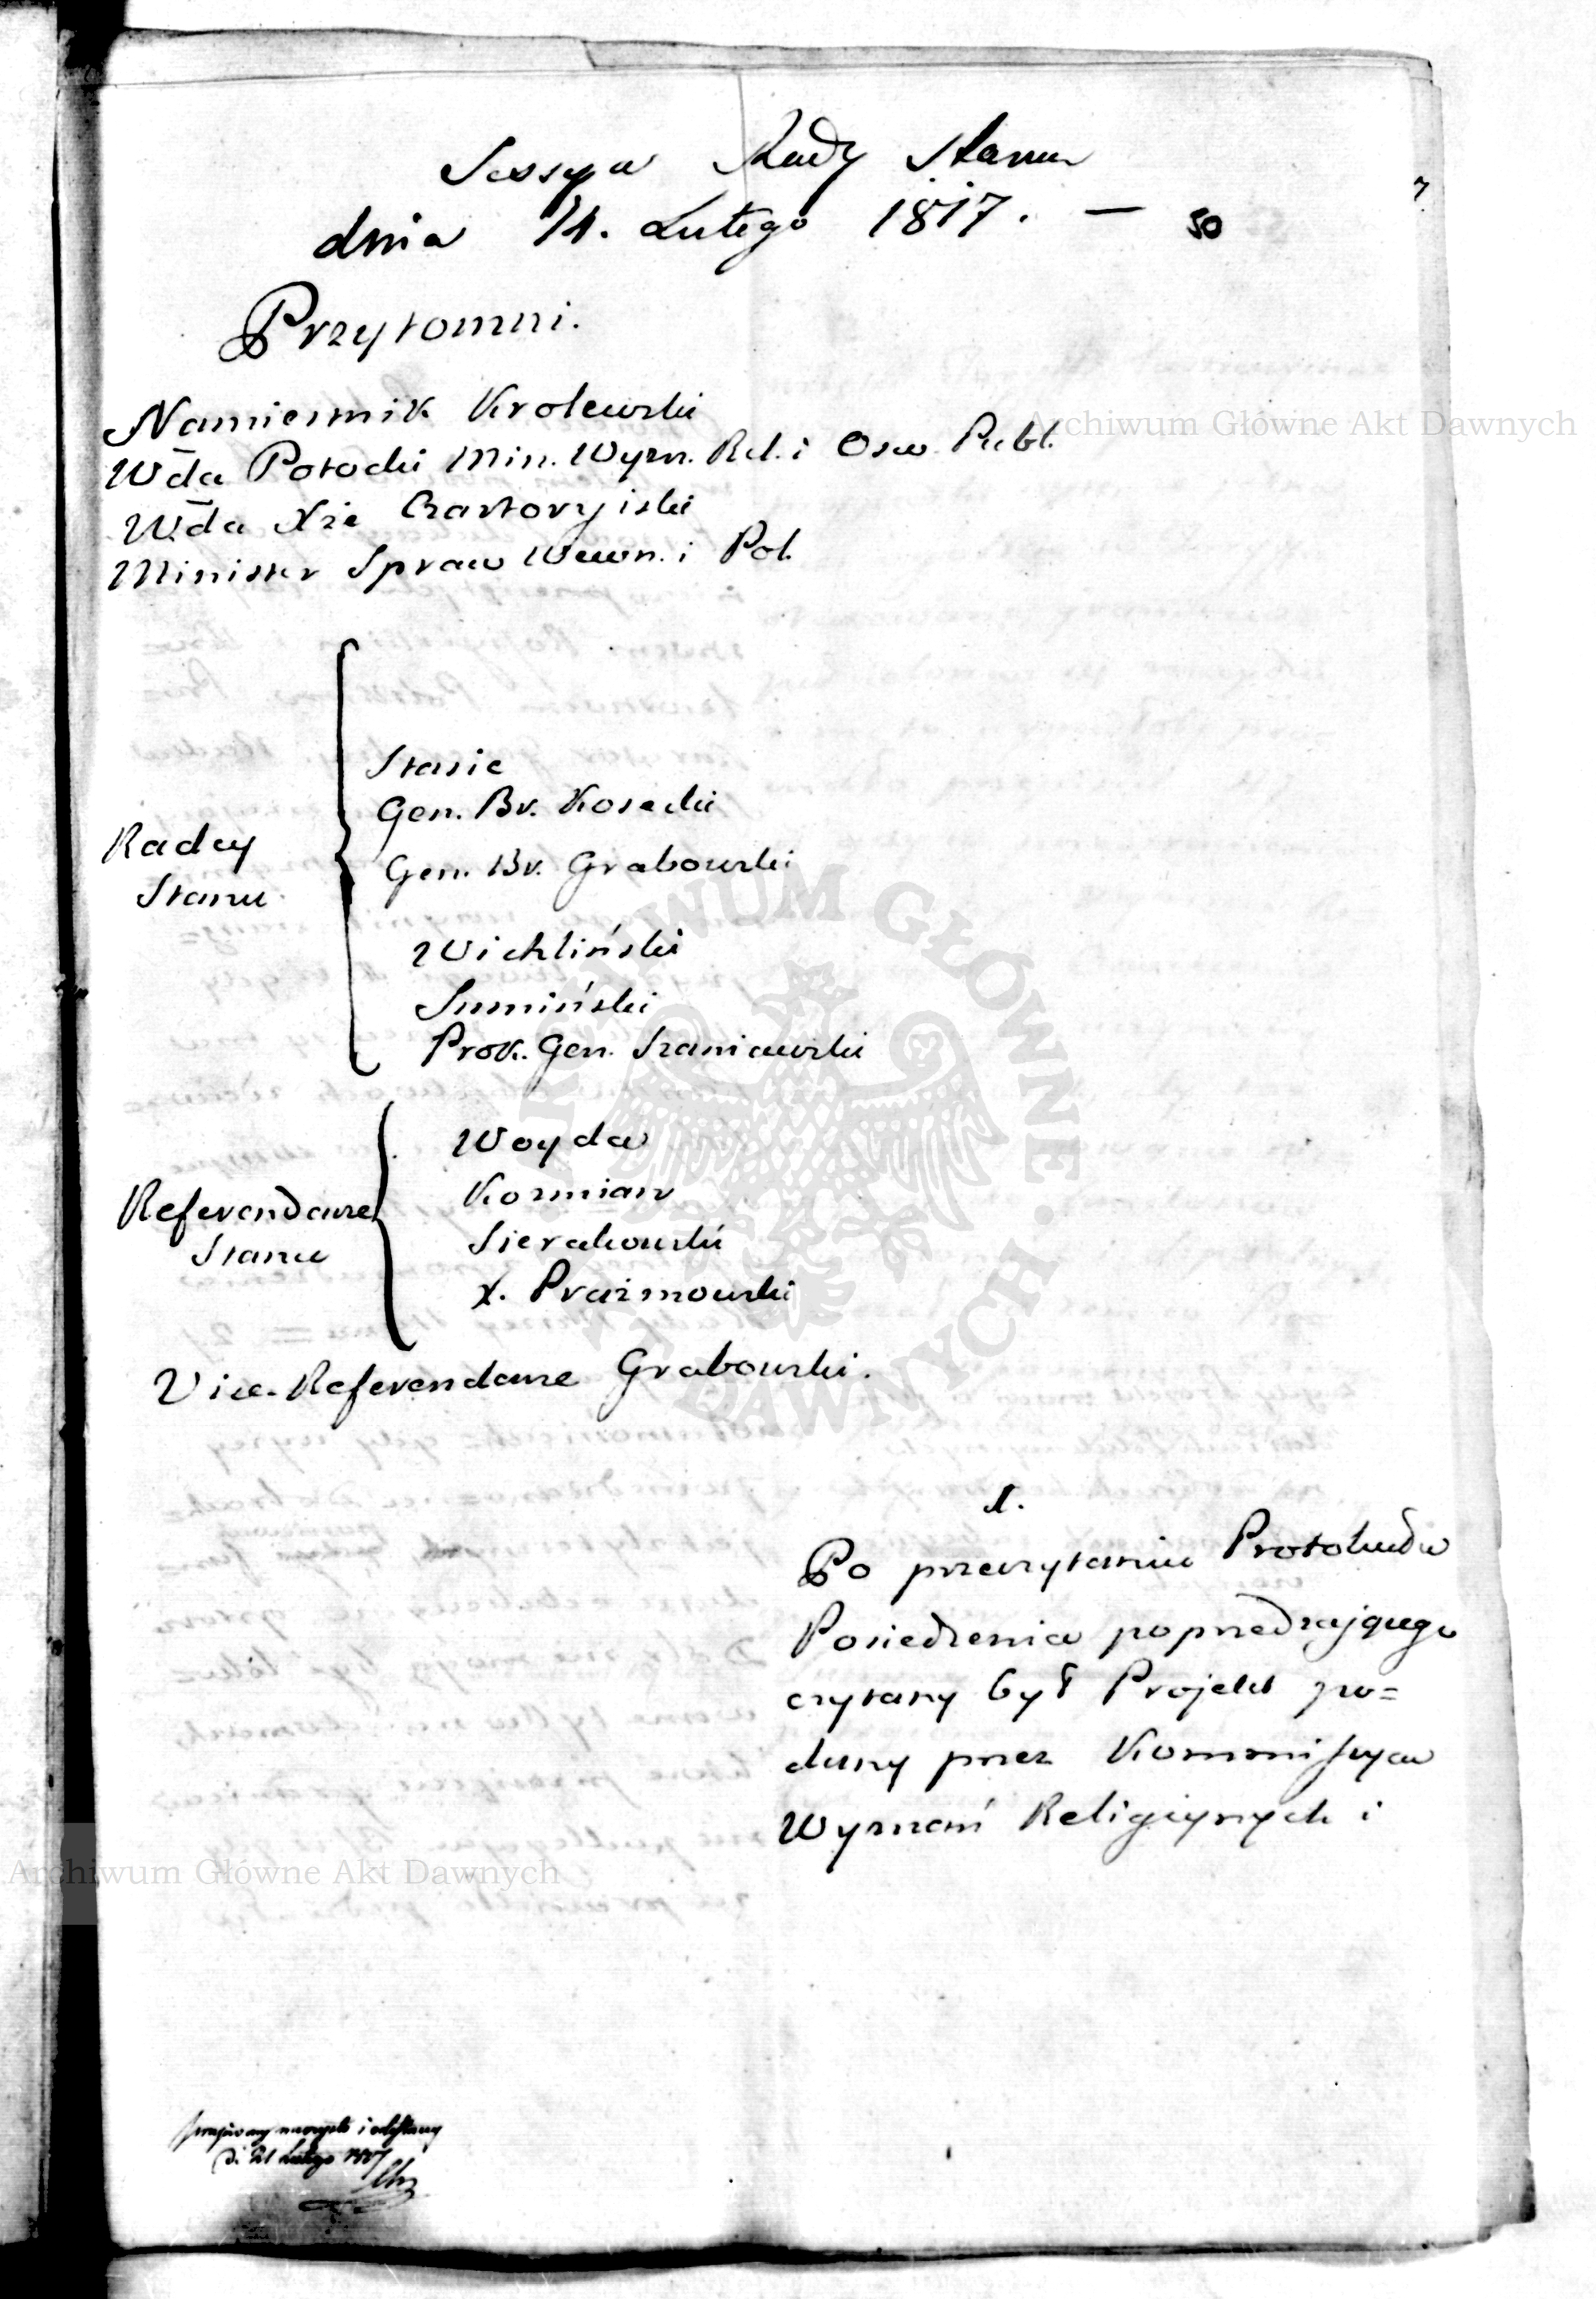 Sessya Rady Stanu
dnia 14. Lutego 1817. — 50
7
Przytomni.
Namiestnik Krolewski
Wda Potocki Min. Wyzn. Rel. i Osw. Publ.
Wda Xże Czartoryiski
Minister Spraw Wewn. i Pol.
Radcy
Stanu
Stasic
Gen. Br. Kosecki
Gen. Br. Grabowski
Wichliński
Sumiński
Prok. Gen. Szaniawski
Referendarze
Stanu
Woyda
Kozmian
Sierakowski
X. Prażmowski
Vice-Referendarz Grabowski.
1.
Po przeczytaniu Protokułu
Posiedzenia poprzedzaiącego
czytany był Projekt po=
dany przez Kommissyą
Wyznań Religiynych i
i odesłany
d. 21 Lutego 1817
Archiwum Główne Akt Dawnych
Archiwum Główne Akt Dawnych
ARCHIWUM GŁÓWNE · AKT DAWNYCH ·